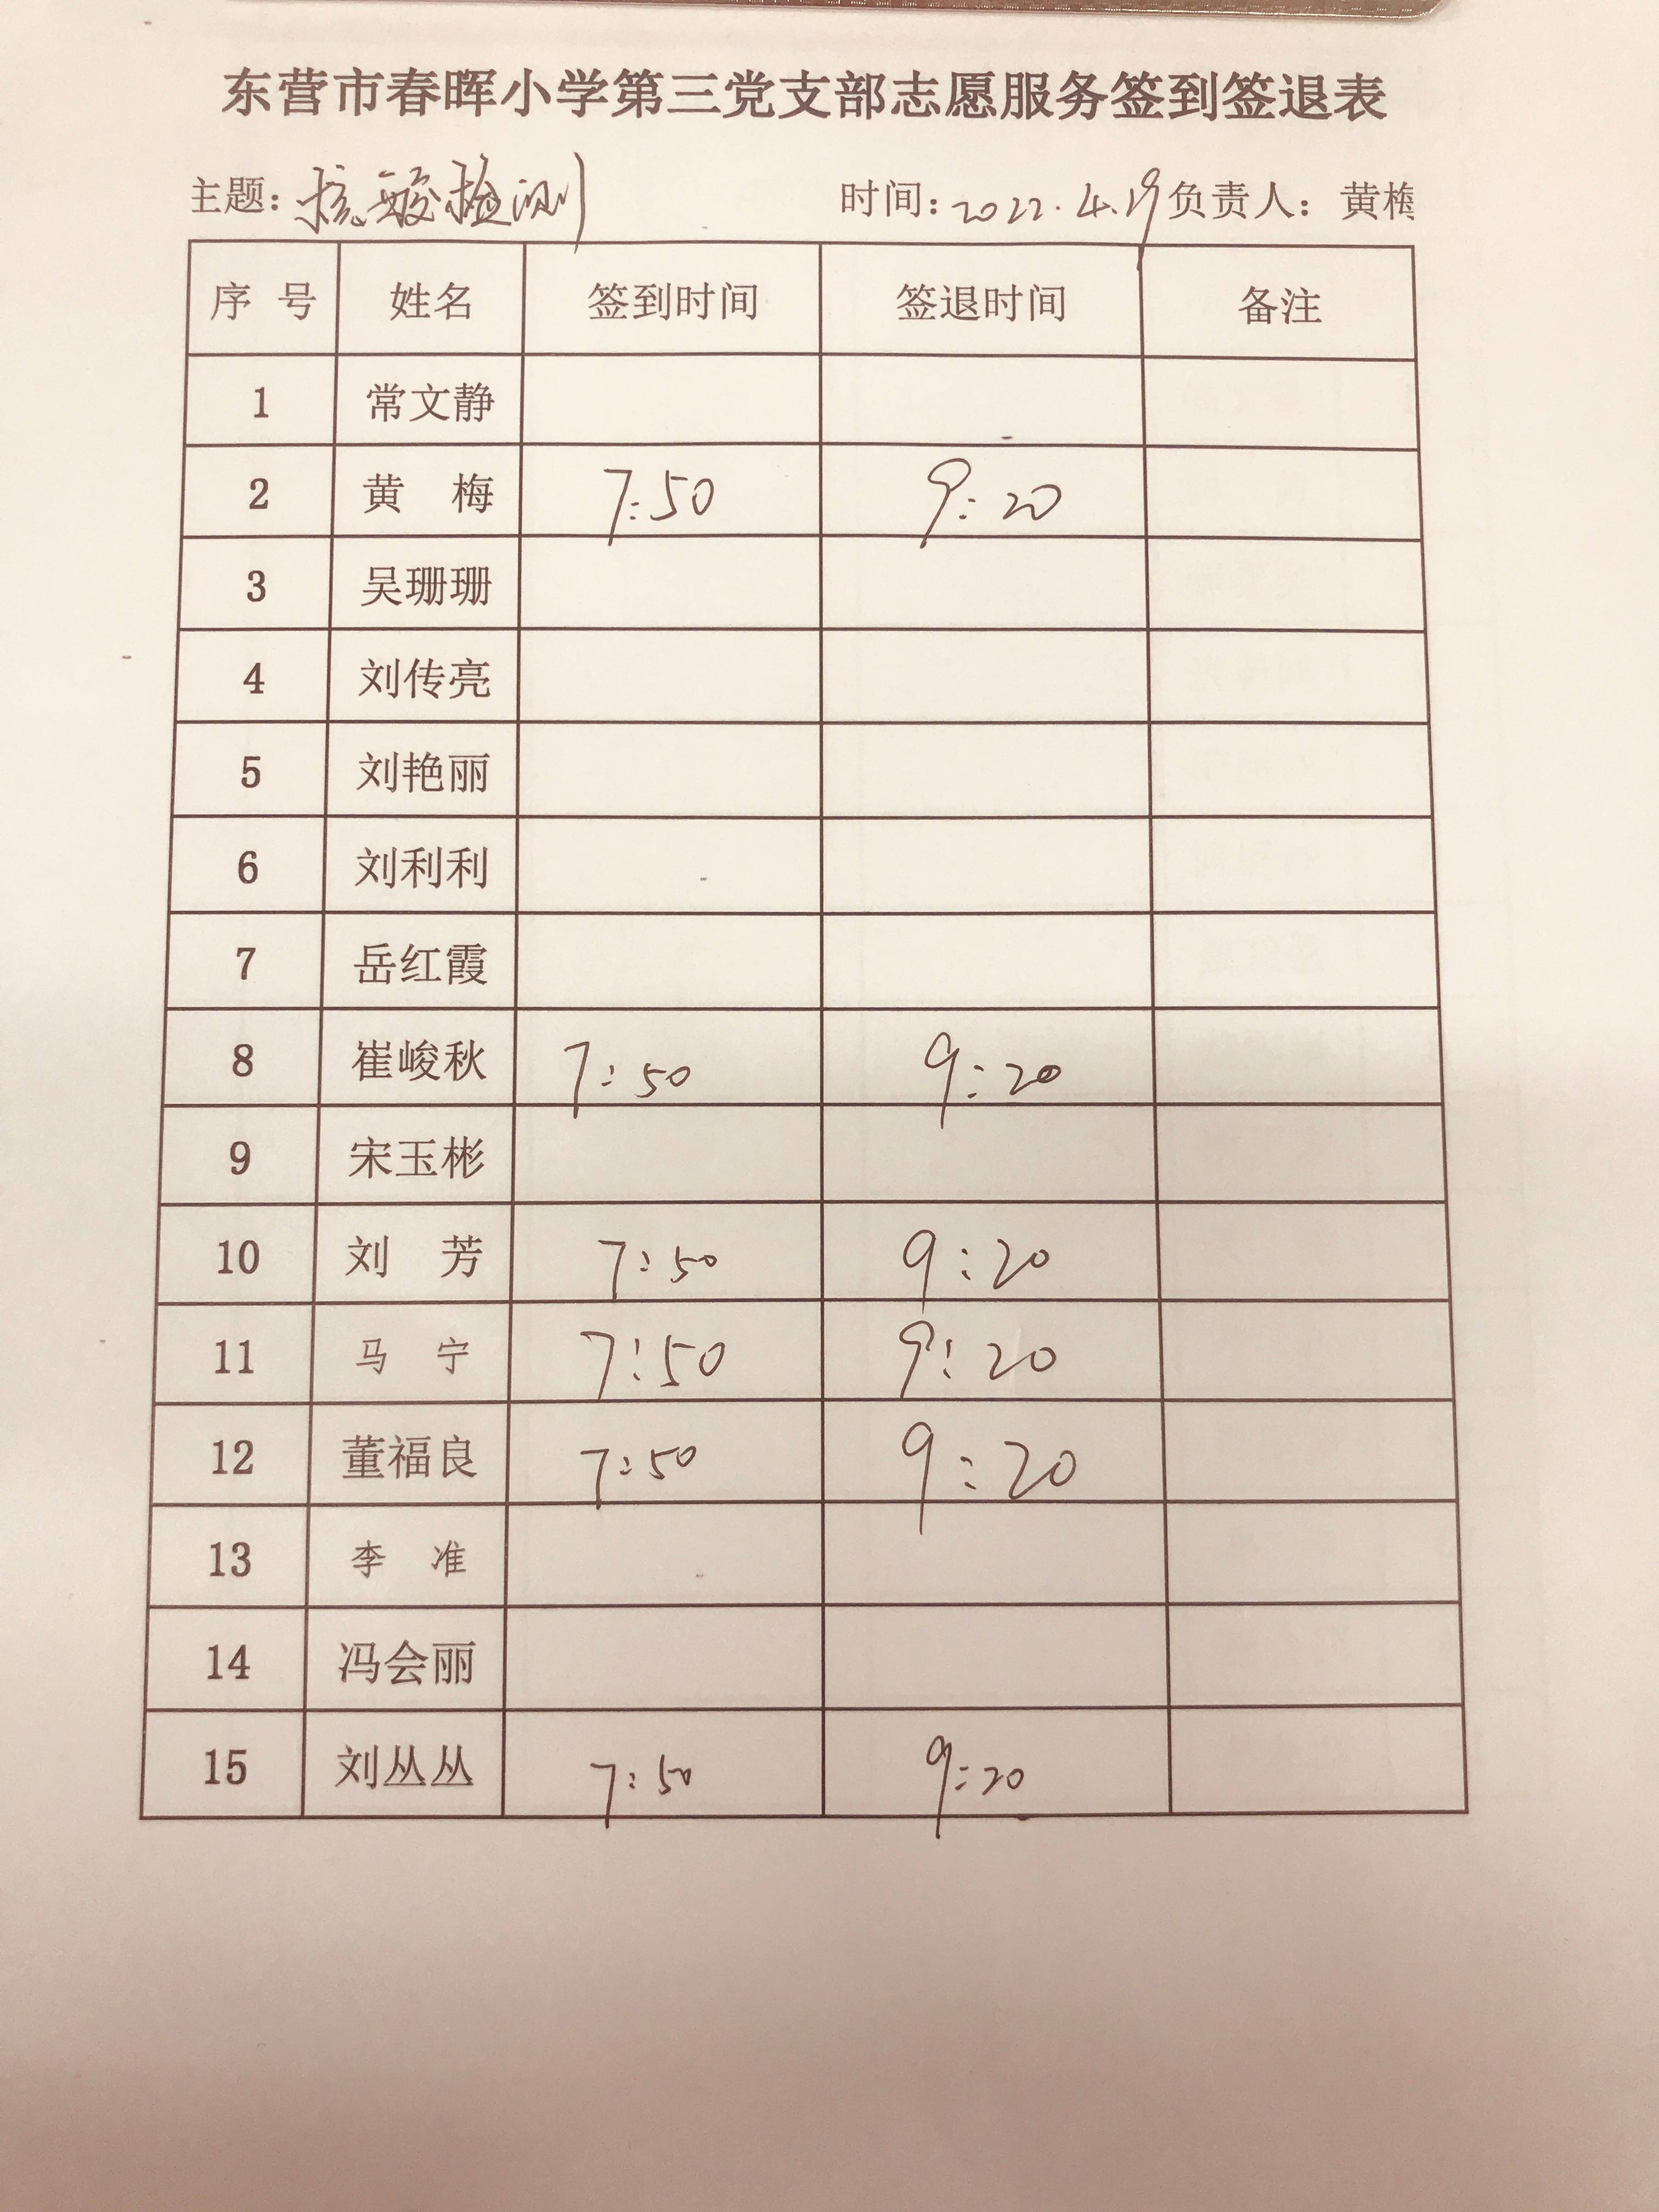 东营市春晖小学第三党支部志愿服务签到签退表
主题: 检测 时间: 2022.4.19 负责人: 黄梅
序 号 姓名 签到时间 签退时间 备注
1 常文静
2 黄 梅 7:50 9:20
3 吴珊珊
4 刘传亮
5 刘艳丽
6 刘利利
7 岳红霞
8 崔峻秋 7:50 9:20
9 宋玉彬
10 刘 芳 7:50 9:20
11 马 宁 7:50 9:20
12 董福良 7:50 9:20
13 李 准
14 冯会丽
15 刘丛丛 7:50 9:20